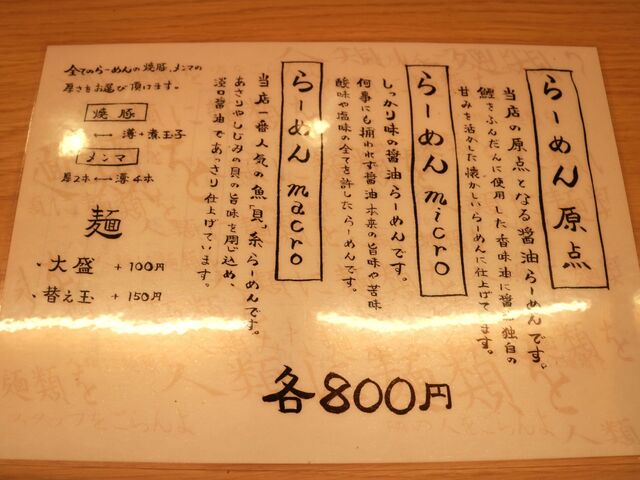 らーめん 原点
当店の原点となる醤油らーめんです。
鰹をふんだんに使用した香味油に醤油独自の
甘みを活かした懐かしいらーめんに仕上げてます。
らーめん micro
しっかり味の醤油らーめんです。
何事にも捕われず醤油本来の旨味や苦味
酸味や塩味の全てを許したらーめんです。
らーめん macro
当店一番人気の魚「貝」系らーめんです。
あさりやしじみの貝の旨味を閉じ込め、
淡口醤油であっさり仕上げています。
全てのらーめんの焼豚、メンマの
厚さをお選び頂けます。
焼豚
厚 ←→ 薄+煮玉子
メンマ
厚2本 ←→ 薄4本
麺
・大盛 +100円
・替え玉 +150円
各800円